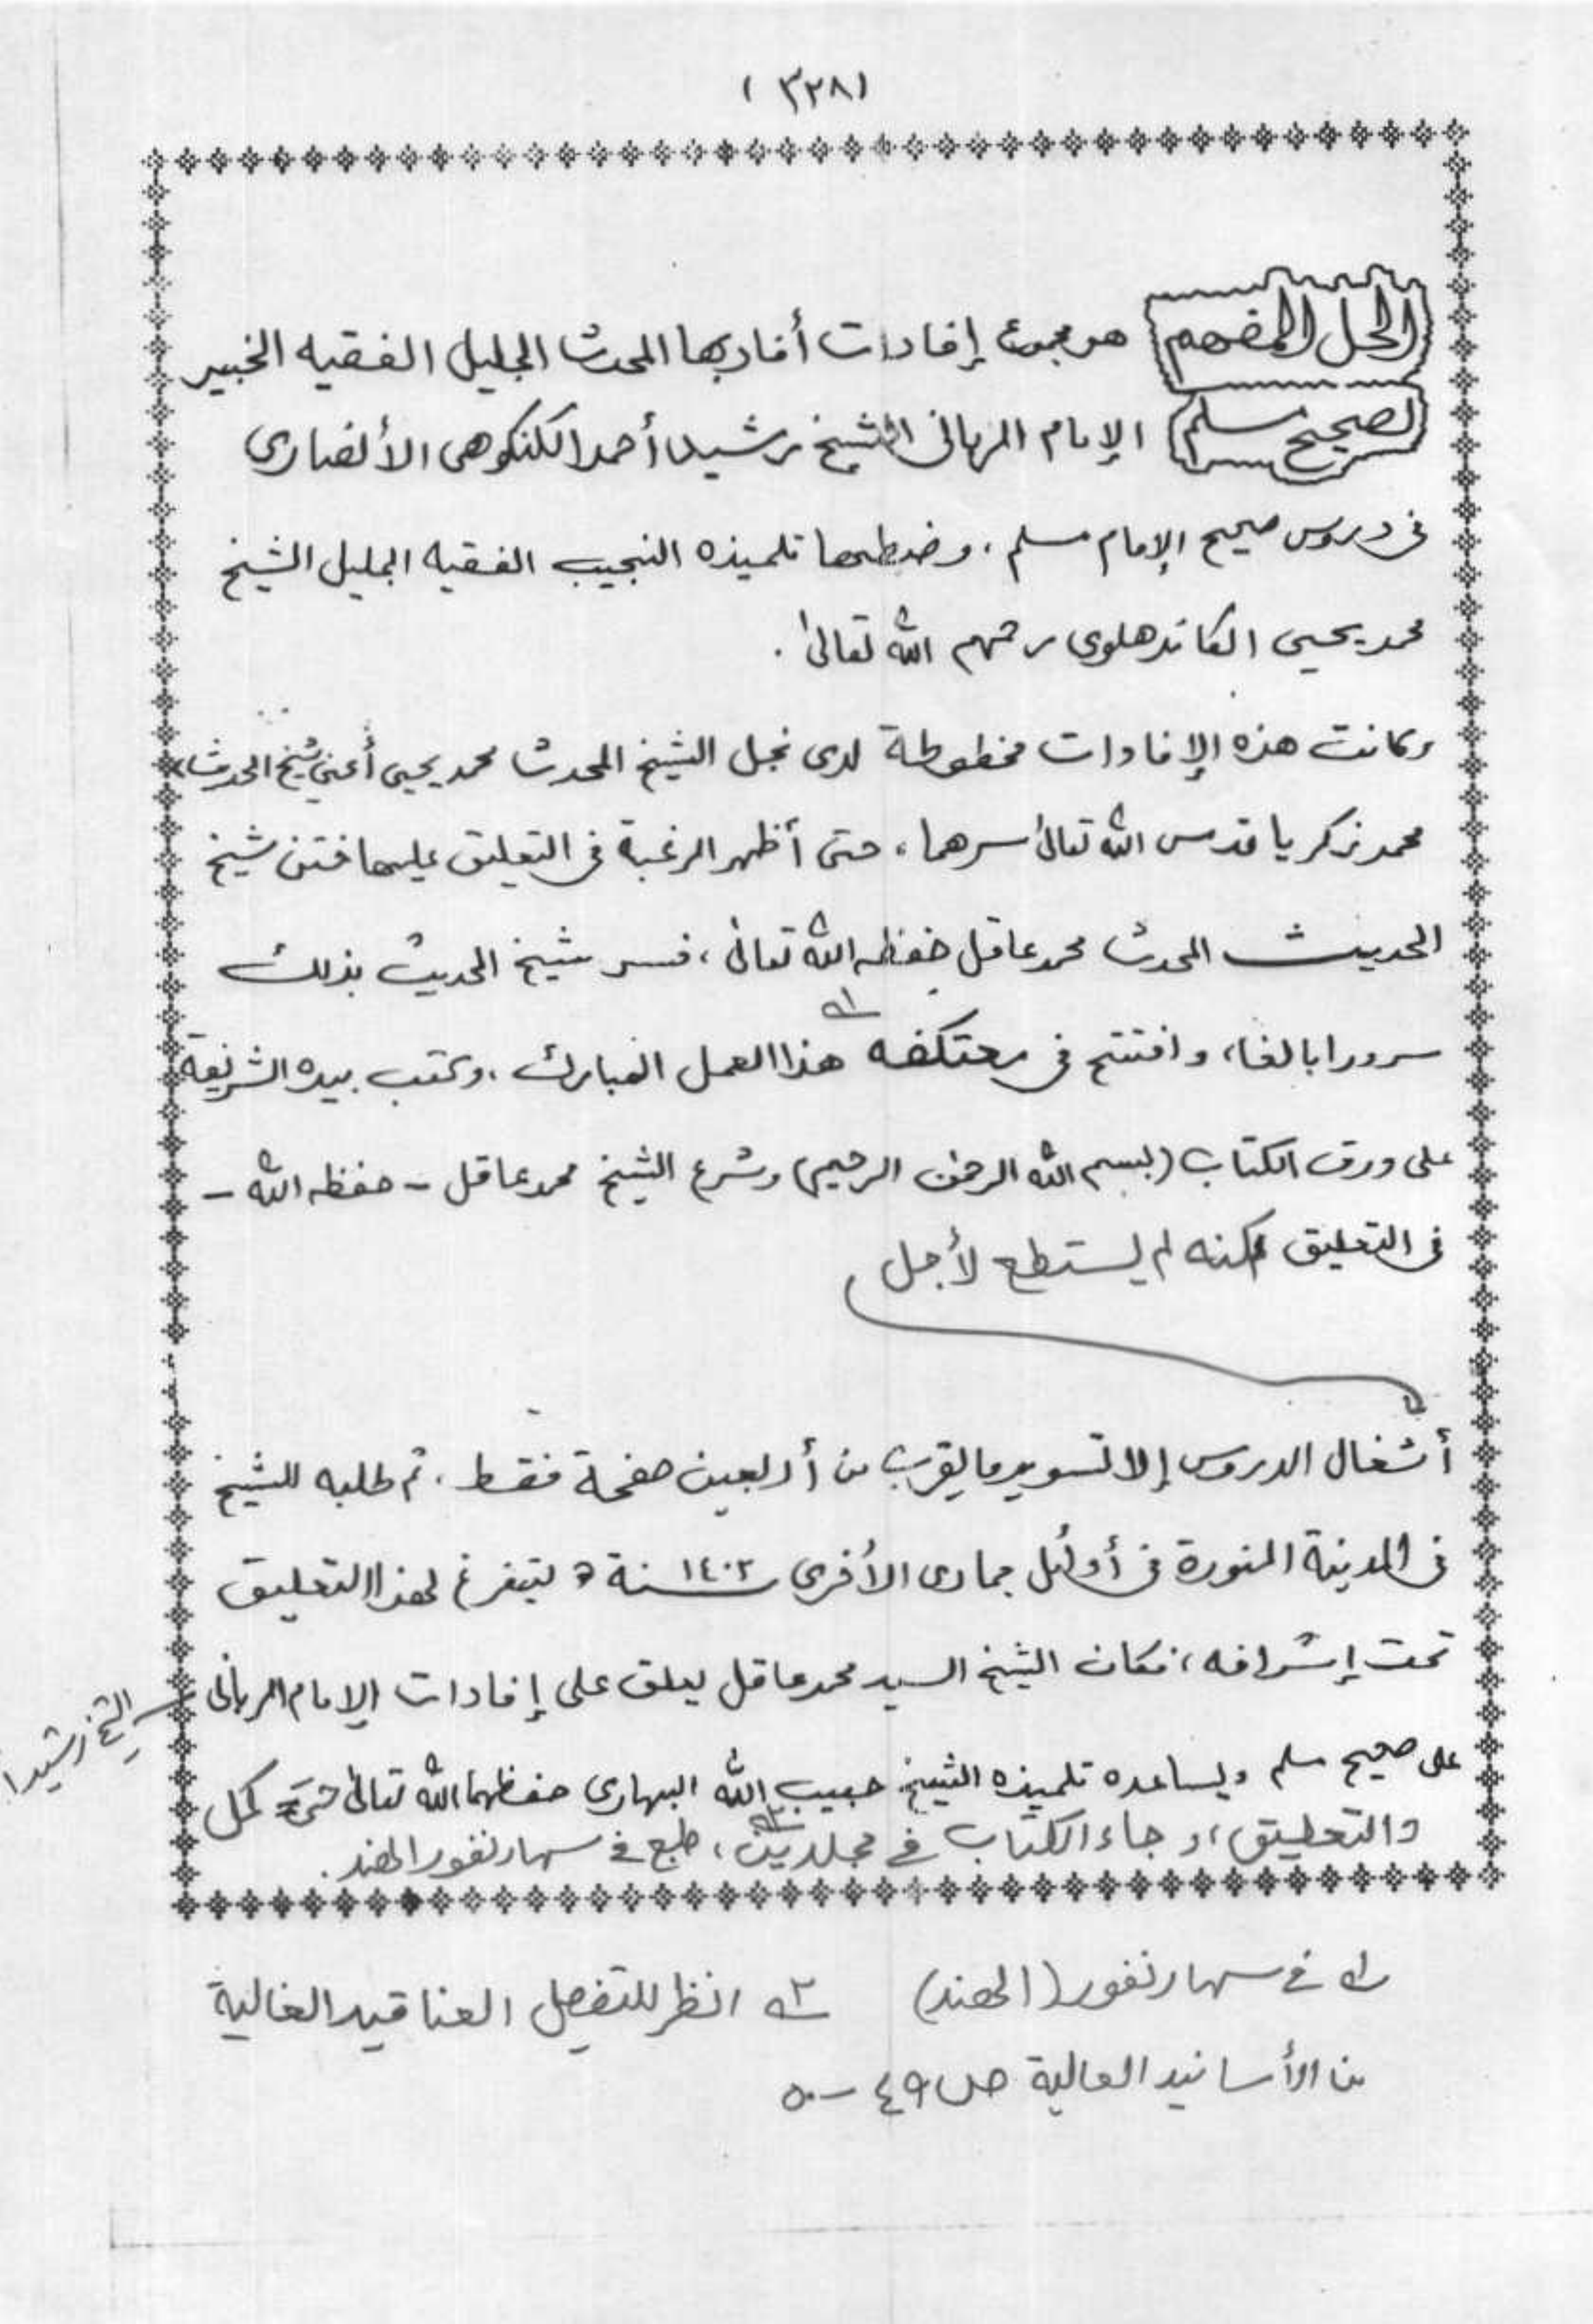 (٣٢٨)
الحل المفهم هو مجموع إفادات أفاد بها المحدث الجليل الفقيه الخبير
لصحيح مسلم الإمام الرباني الشيخ رشيد أحمد الكنكوهي الأنصاري
في دروس صحيح الإمام مسلم، وضبطها تلميذه النجيب الفقيه الجليل الشيخ
محمد يحيى الكاندهلوي رحمهم الله تعالىٰ.
وكانت هذه الإفادات مخطوطة لدى نجل الشيخ المحدث محمد يحيى أعني شيخ الحديث
محمد زكريا قدس الله تعالىٰ سرهما، حتى أظهر الرغبة في التعليق عليها ختن شيخ
الحديث المحدث محمد عاقل حفظه الله تعالىٰ، فسر شيخ الحديث بذلك
سرورا بالغا، وافتتح في معتكفه ١ـه هذا العمل المبارك، وكتب بيده الشريفة
على ورق الكتاب (بسم الله الرحمٰن الرحيم) وشرع الشيخ محمد عاقل - حفظه الله -
في التعليق لكنه لم يستطع لأجل
أشغال الدروس إلا تسويد ما يقرب من أربعين صفحة فقط. ثم طلبه الشيخ
في المدينة المنورة في أوائل جمادى الأخرى سنة ١٤٠٢ه ليتفرغ لهذا التعليق
تحت إشرافه، فكان الشيخ السيد محمد عاقل يعلق على إفادات الإمام الرباني
الشيخ رشيد
على صحيح مسلم ويساعده تلميذه الشيخ حبيب الله البهاري حفظهما الله تعالىٰ حتى كمل
والتعليق، وجاء الكتاب في مجلدين ٢ـه، طبع في سهارنفور الهند.
١ـه في سهارنفور (الهند) ٢ـه انظر للتفصل العناقيد الغالية
من الأسانيد العالية ص ٤٩ - ٥٠